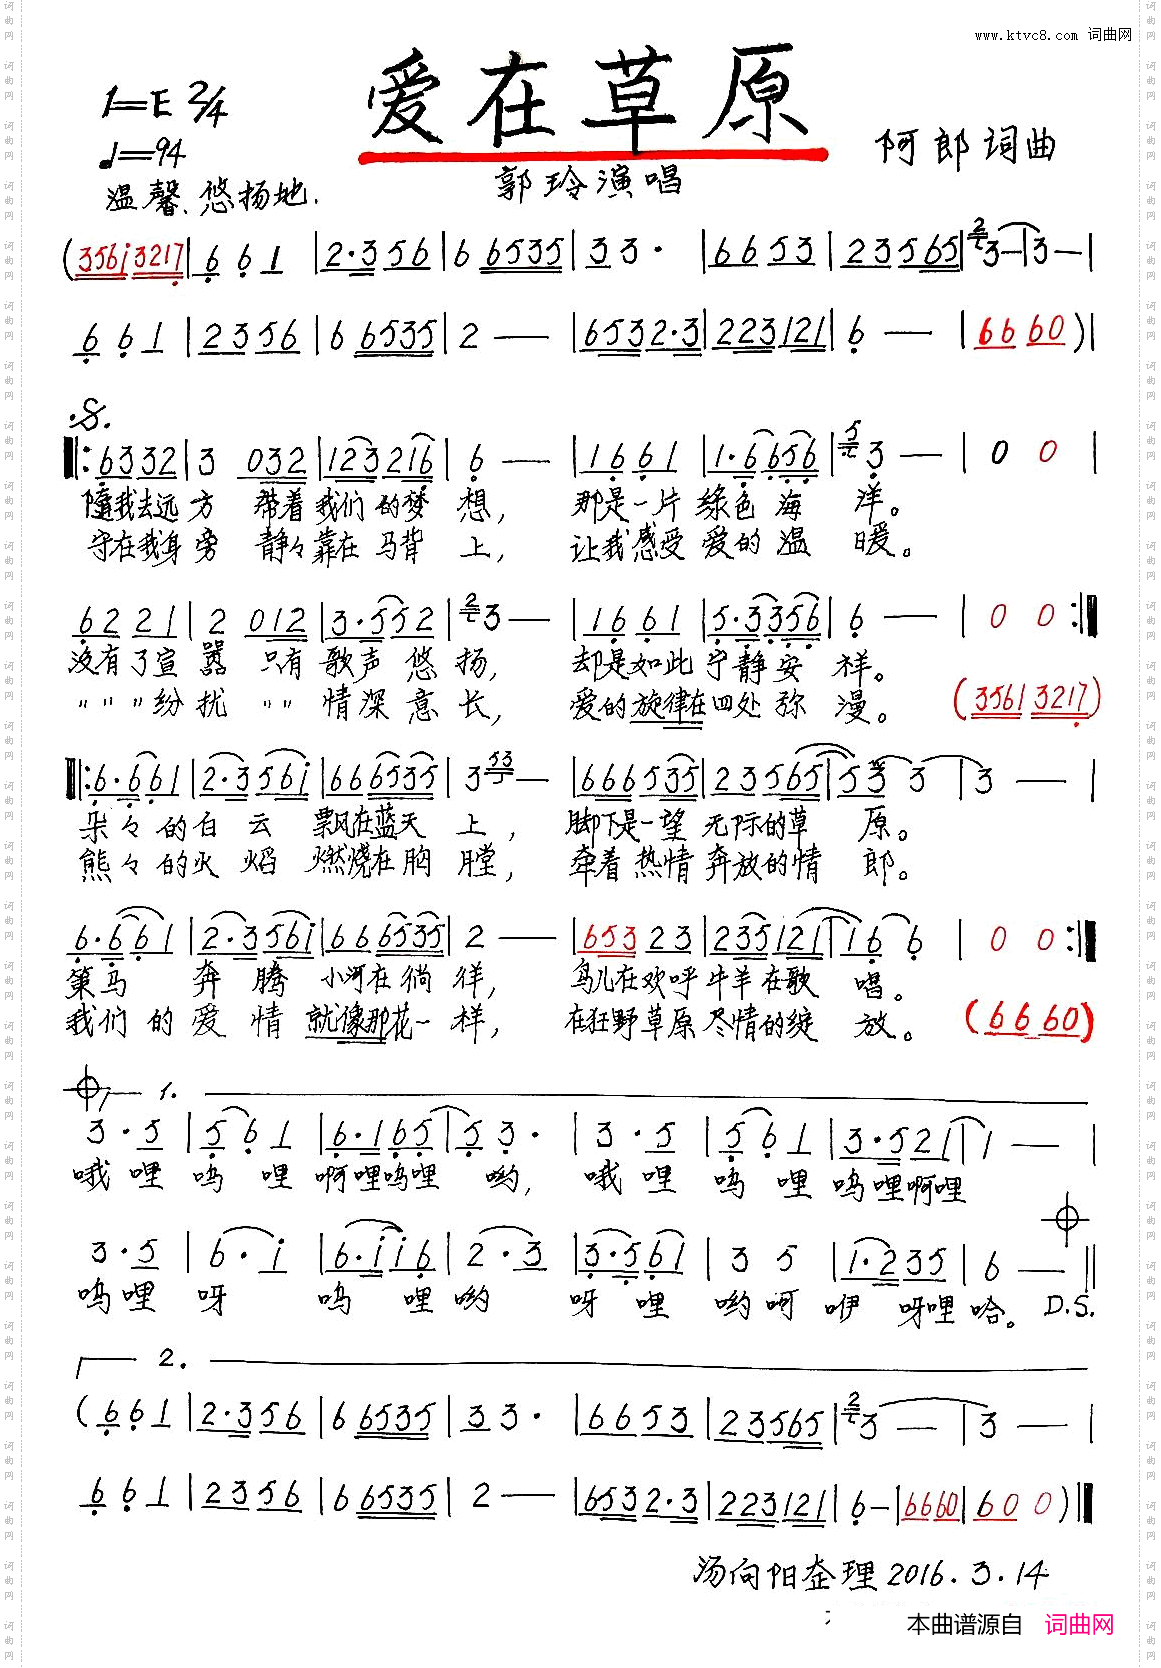 www.ktvc8.com 词曲网
爱在草原
1=E 2/4
♩=94
阿郎词曲
温馨、悠扬地.
郭玲演唱
(3561 3217 | 6 6 1 | 2·3 5 6 | 6 6535 | 3 3· | 6 6 5 3 | 2 3 5 6 5 | 2 3 — | 3 — |
6 6 1 | 2 3 5 6 | 6 6535 | 2 — | 6532·3 | 223121 | 6 — | 6 6 6 0 ) |
𝄋
‖: 6332 | 3 032 | 123216 | 6 — | 1 6 6 1 | 1·6 656 | 5 3 — | 0 0 |
随我去远方 带着我们的梦想, 那是一片绿色海洋。
守在我身旁 静々靠在马背上, 让我感受爱的温暖。
6 2 2 1 | 2 012 | 3·552 | 2 3 — | 1 6 6 1 | 5·3 356 | 6 — | 0 0 :‖
没有了宣嚣 只有歌声悠扬, 却是如此宁静安祥。
〃〃〃纷扰 〃〃情深意长, 爱的旋律在四处弥漫。 (3561 3217)
‖: 6·661 | 2·3561 | 666535 | 3 53 — | 666535 | 23565 | 5 3 | 3 — |
朵々的白云 飘在蓝天上, 脚下是一望无际的草原。
熊々的火焰 燃烧在胸膛, 牵着热情奔放的情郎。
6·661 | 2·3561 | 666535 | 2 — | 653 23 | 235121 | 1 6 6 | 0 0 :‖
策马奔腾 小河在徜徉, 鸟儿在欢呼牛羊在歌唱。
我们的爱情 就像那花一样, 在狂野草原尽情的绽放。 (6 6 6 0)
1.
3·5 | 5 6 1 | 6·165 | 5 3· | 3·5 | 5 6 1 | 3·521 | 1 — |
哦哩呜哩啊哩呜哩哟, 哦哩呜哩呜哩啊哩
3·5 | 6·1 | 6·116 | 2·3 | 3·561 | 3 5 | 1·235 | 6 — ‖
呜哩呀呜哩哟呀哩哟呵咿呀哩哈。 D.S.
2.
( 6 6 1 | 2·356 | 6 6535 | 3 3· | 6 6 5 3 | 23565 | 2 3 — | 3 — |
6 6 1 | 2 3 5 6 | 6 6535 | 2 — | 6532·3 | 223121 | 6 — | 6660 | 60 0 ) ‖
汤向阳整理 2016.3.14
本曲谱源自 词曲网